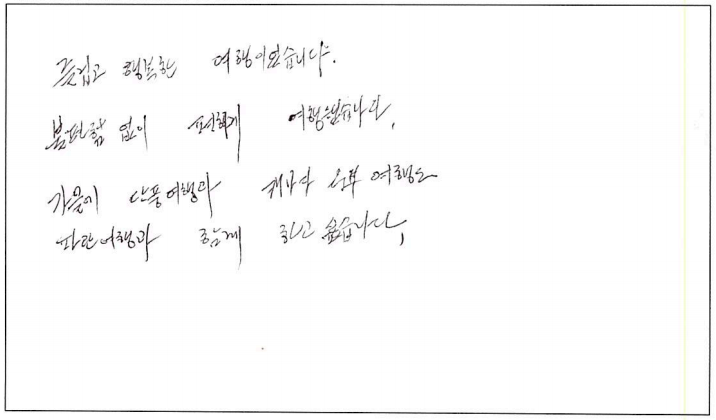 즐겁고 행복한 여행이였습니다.
불편함 없이 편하게 여행했습니다.
가을에 단풍여행과 캐나다 서부 여행도
파란여행과 함께 하고 싶습니다.